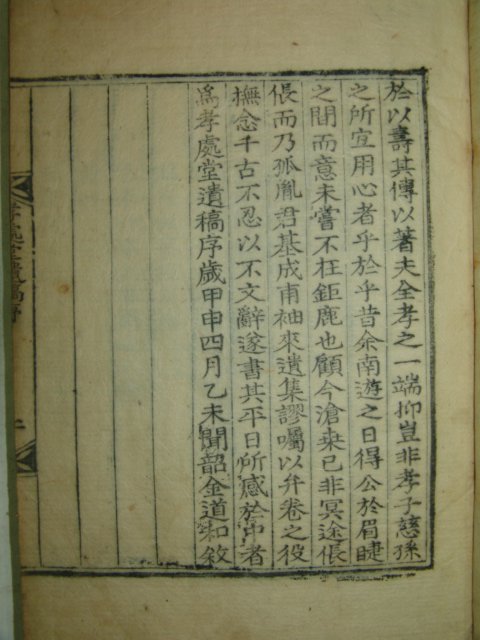 於以壽其傳以著夫全孝之一端抑豈非孝子慈孫
之所宜用心者乎於乎昔余南遊之日得公於眉睫
之間而意未嘗不在鉅鹿也顧今滄桒已非冥途倀
倀而乃孤胤君基成甫袖來遺集謬囑以弁卷之役
撫念千古不忍以不文辭遂書其平日所感於中者
爲孝處堂遺稿序歲甲申四月乙未聞韶金道和敘